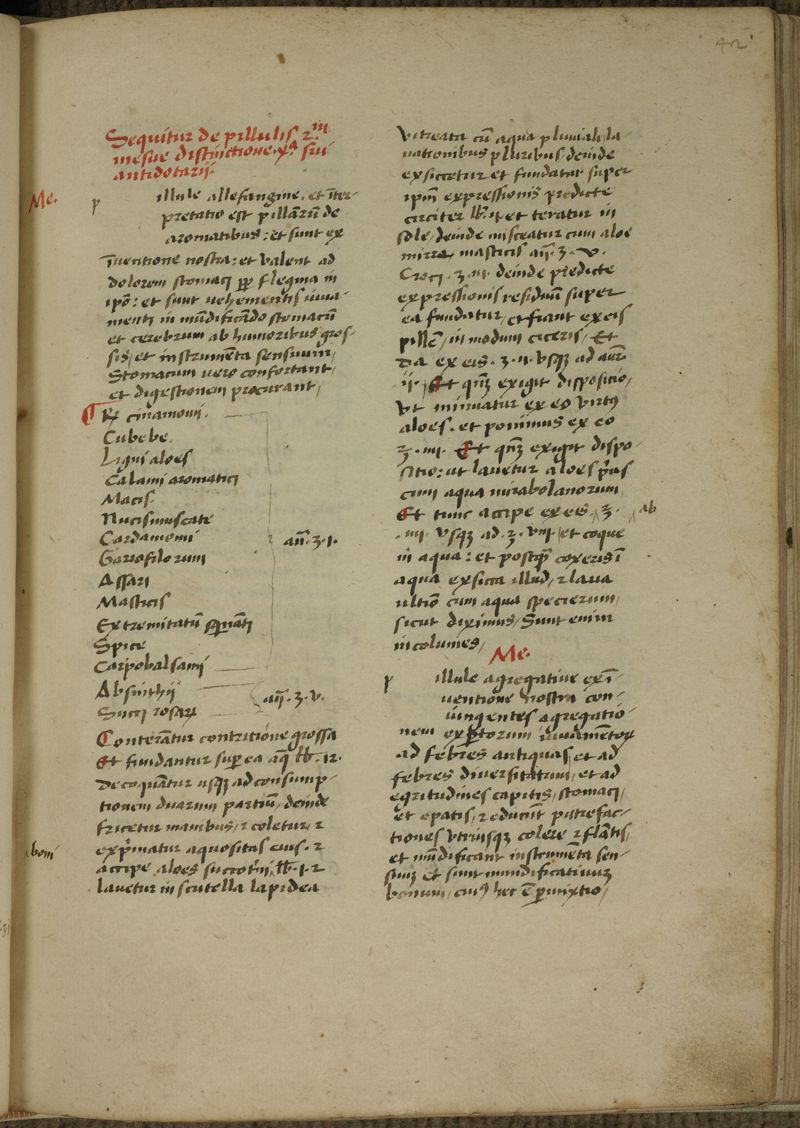 42
Sequitur de pillulis 2m
mesue distinctione xa sui
antidotarij.
Me.
p illule allefangine. et īter-
pretatio est pillarū de
aromatibus: et sunt ex
īuentione nostra: et valent ad
dolorem stomaci pp flegma in
ipō: et sunt uehementis iuua-
menti in mūdificādo stomacū
et cerebrum ab humoribus gros-
sis/ et instrumēta sensuum/
Stomacum uero confortant/
et digestionem procurant/
¶ R cinamomi.
Cubebe.
Ligni aloes
Calami aromatici
Macis.
Nucis muscate
Cardamomi
Gariofilorum
Assari
Masticis
Extremitatū squināti
Spice
Carpobalsami
añ. ʒ. 1.
Absinthij
Succi rosaꝝ
añ. ʒ. v.
Conterātur contritiōe grossa
Et fundantur sup ea aq̄ lb. 12.
decoquātur usqꝫ ad consump-
tionem duarum partiū/ deinde
fricetur manibus/ 2 coletur/ 2
exp̄matur aquositas eius. 2
boni
accipe aloes succotrī lb. 1. 2
lauetur in scutella lapidea
vitreata cū aqua pluuiali/ la-
uationibus pluribus deinde
exsiccetur et fundatur super
ipm̄ expressionis predicte
circiter lb. et teratur in
sole/ deinde misceatur cum aloe
mirra/ masticis añ. ʒ. v.
Croci. ʒ. iij deinde predicte
expressionis residuū super
ea fundatur/ et fiant ex eis
pille/ in modum ciceris/ Et
da ex eis. ʒ. ij vsqꝫ ad aur.
ij. Et qn̄qꝫ exigit dispositio/
vt minuatur ex eo virtꝰ
aloes. et ponimus ex eo
ʒ. iiij. Et qn̄qꝫ exigit dispo-
sitio: ut lauetur aloes p̄us
cum aqua mirabolanorum/
Et tunc accipe ex eis ʒ. ab
iiij. vsqꝫ ad. ʒ. viij et coque
in aqua: et postq̄ coxeris ī
aqua exsicca illud/ 2 laua
ultiō cum aqua specierum/
sicut diximus/ Sunt enim
incolumes/
Me.
p illule agregatiue ex ī-
uentione nostra con-
iungentes agregatiō-
nem expertorum iuuamētoꝝ
ad febres antiquas et ad
febres diuersitatum/ et ad
egritudines capitis/ stomaci/
et epatis/ 2 educūt putrefac-
tiones vtriusqꝫ colere 2 flātis/
et mūdificant instrumēta sen-
suū/ et sunt mundificatiuū
bonum/ cuiꝰ hec ē p̄unxtio/